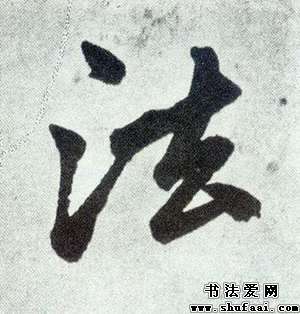 法
书法爱网
www.shufaai.com